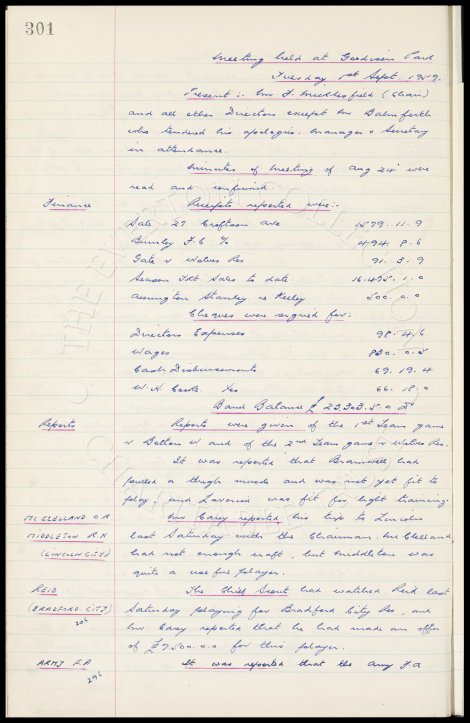 301
Meeting held at Goodison Park
Tuesday 1st Sept. 1959.
Present :- Mr F. Micklesfield (Chair)
and all other Directors except Mr Balmforth
who tendered his apologies. Manager & Secretary
in attendance.
Minutes of Meeting of Aug 24th were
read and confirmed.
Finance Receipts reported were:-
Sale 27 Croftson Ave 1579. 11. 9
Burnley F.C % 494. 8. 6
Gate v Wolves Res 91. 3. 9
Season Tkt Sales to date 16.495. 1. 0
Accrington Stanley re Keeley 500. 0. 0
Cheques were signed for:
Directors Expenses 98. 4. 6
Wages 830. 0. 5
Cash Disbursements 69. 19. 4
W. H. 66. 18. 0
Bank Balance £ 23,303. 5. 0
Reports Reports were given of the 1st Team game
v Bolton W and of the 2nd Team game v Wolves Res.
It was reported that Bramwell had
pulled a thigh muscle and was not yet fit to
play, and Laverick was fit for light training.
Mc Clelland O.R Mr Carey reported his trip to Lincoln
Middleton R.H last Saturday with the Chairman. McClelland
(Lincoln City) had not enough craft, but Middleton was
quite a useful player.
Reid The Chief Scout had watched Reid last
(Bradford City) Saturday playing for Bradford City Res, and
Mr Carey reported that he had made an offer
of £7.500.0.0 for this player.
Army F.A It was reported that the Army F.A
THE EVERTON COLLECTION